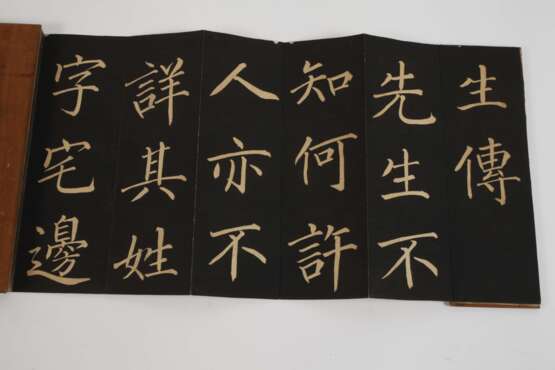 生傳
先生不
知何許
人亦不
詳其姓
字宅邊